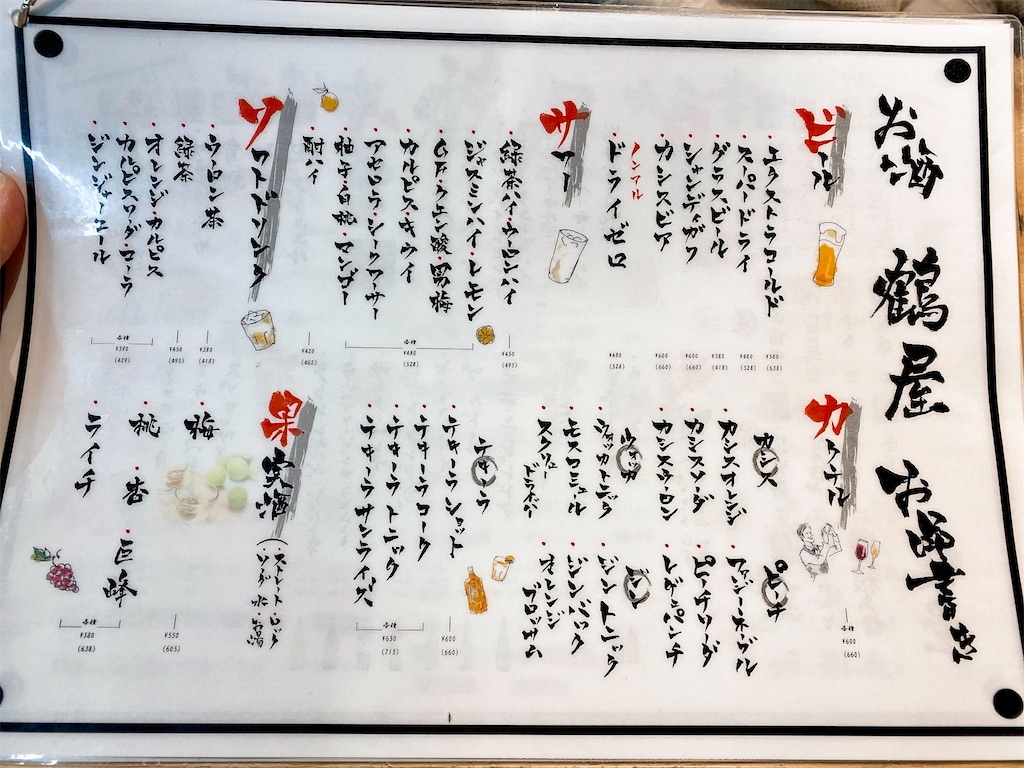 お酒 鶴屋 お品書き
ビール
・エクストラコールド ¥580 (638)
・スーパードライ ¥480 (528)
・グラスビール ¥380 (418)
・シャンディガフ ¥600 (660)
・カシスビア ¥600 (660)
・ノンアル
ドライゼロ ¥480 (528)
サワー
・緑茶ハイ・ウーロンハイ ¥450 (495)
・ジャスミンハイ・レモン
・クエン酸・男梅
・カルピス・キウイ
・アセロラ・シークワーサー
・柚子・白桃・マンゴー
各種 ¥480 (528)
・酎ハイ ¥420 (462)
ソフトドリンク
・ウーロン茶 ¥380 (418)
・緑茶 ¥450 (495)
・オレンジ・カルピス
・カルピスソーダ・コーラ
・ジンジャーエール
各種 ¥390 (429)
カクテル
各種 ¥600 (660)
カシス
・カシスオレンジ
・カシスソーダ
・カシスウーロン
ピーチ
・ファジーネーブル
・ピーチソーダ
・レゲエパンチ
ウォッカ
・ウォッカトニック
・モスコミュール
・スクリュードライバー
ジン
・ジントニック
・ジンバック
・オレンジブロッサム
テキーラ
・テキーラショット ¥600 (660)
・テキーラコーク
・テキーラトニック
・テキーラサンライズ
各種 ¥650 (715)
果実酒(・ストレート・ロック
・ソーダ・水・お湯
・梅 ¥550 (605)
・桃 ・杏 ・巨峰
・ライチ
各種 ¥580 (638)